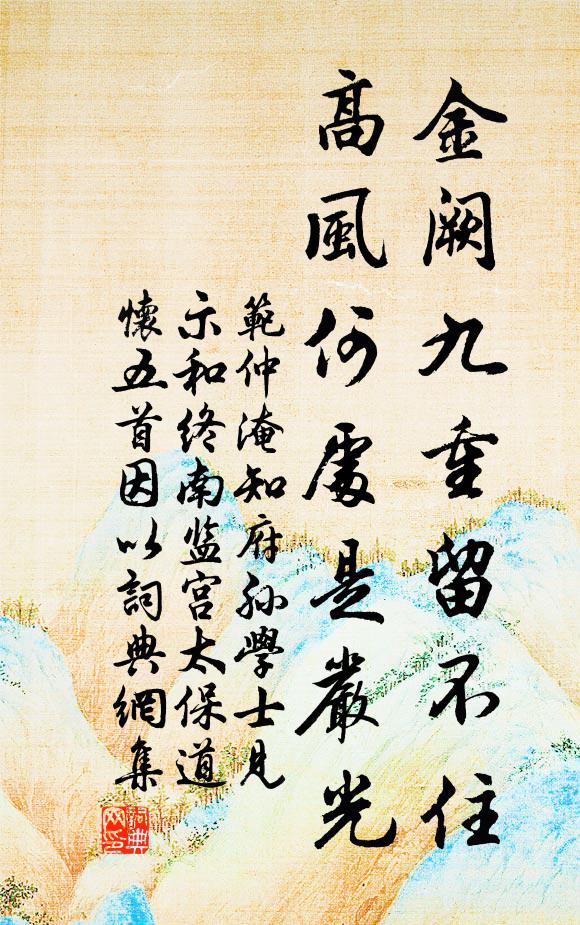 金阙九重留不住
高風何處是嚴光
範仲淹知府孙學士見
示和终南监宫太保道
懷五首因以詞典網集
詞典
网印